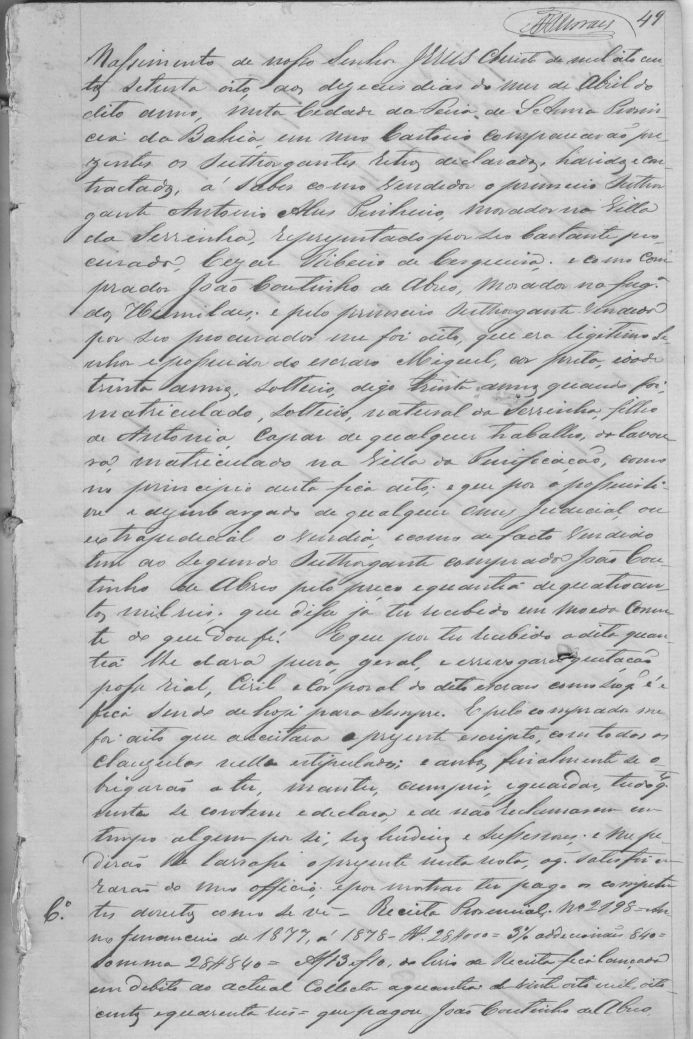 AMoraes 49
Nascimento de nosso Senhor JESUS Christo de mil oito cen
tos setenta oito, aos dezeseis dias do mez de Abril do
dito anno, nesta Cidade da Feira de Sta Anna Provin
cia da Bahia, em meu Cartorio compareceraõ pre
zentes os Outhorgantes retro declarados, havidos e con
tractados, a saber como vendedor o primeiro Outhor
gante Antonio Alves Pinheiro, morador na Villa
da Serrinha, reprezentado por seo bastante pro
curador, Cezar Ribeiro de Cerqueira; e como com
prador João Coutinho de Abreo, morador na freg.ª
dos Humildes: e pelo primeiro Outhorgante vendedor
por seo procurador me foi dito, que era legitimo Se
nhor e possuidor do escravo Miguel, cor preta, idade
trinta annos, solteiro, digo trinta annos quando foi
matriculado, solteiro, natural da Serrinha, filho
de Antonia, capaz de qualquer trabalho, da lavou
ra, matriculado na Villa da Purificação, como
no principio desta fica dito; e que por o possuir li
vre e dezembargado de qualquer onus judicial ou
extrajudicial o vendia, e como de facto vendido
tem ao segundo Outhorgante comprador João Cou
tinho de Abreo pelo preço e quantia de quatro cen
tos mil reis, que disse já ter recebido em moeda corren
te do que dou fé. E que por ter recebido a dita quan
tia lhe dava pura, geral, e irrevogavel quitação
posse real, civil e corporal do dito escravo como seo q' é e
fica sendo de hoje para sempre. E pelo comprador me
foi dito que acceitava o prezente escripto, com todas as
clauzulas nelle estipuladas; e ambos finalmente se o
brigarão a ter, manter, cumprir, e guardar, tudo q'
nesta se contem e declara e de não reclamarem em
tempo algum por si, seos herdeiros e successores; e me pe
dirão lhe lavrasse o prezente nesta nota, oq' satisfiz em
razão do meo officio, e por mostrar ter pago os competen
tes direitos como se vê = Receita Provincial. Nº 2198 = An
C.º no financeiro de 1877, á 1878 - Rs 28$000 = 3% addicionáes 840 =
Somma 28$840 = Af 13 do livro de Receita fica lançada
em debito ao actual Collector a quantia de vinte oito mil, oito
centos e quarenta reis = que pagou João Coutinho de Abreo,